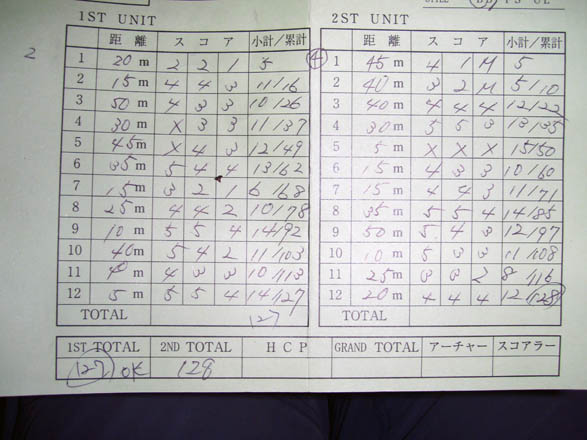 1ST UNIT
距離 スコア 小計/累計
1 20m 2 2 1 5
2 15m 4 4 3 11/16
3 50m 4 3 3 10/26
4 30m X 3 3 11/37
5 45m X 4 3 12/49
6 35m 5 4 4 13/62
7 15m 3 2 1 6/68
8 25m 4 4 2 10/78
9 10m 5 5 4 14/92
10 40m 5 4 2 11/103
11 m 4 3 3 10/113
12 5m 5 5 4 14/127
TOTAL 127
2
2ST UNIT
④
距離 スコア 小計/累計
1 45m 4 1 M 5
2 40m 3 2 M 5/10
3 40m 4 4 4 12/22
4 30m 5 5 3 13/35
5 5m X X X 15/50
6 15m 4 3 3 10/60
7 15m 4 4 3 11/71
8 35m 5 5 4 14/85
9 50m 5 4 3 12/97
10 10m 5 3 3 11/108
11 25m 3 3 2 8/116
12 20m 4 4 4 12/128
TOTAL
1ST TOTAL 2ND TOTAL H C P GRAND TOTAL アーチャー スコアラー
127 OK 128